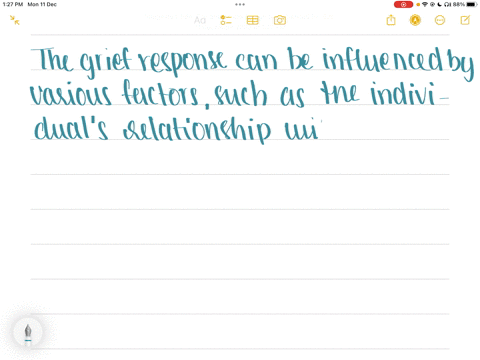 1:27 PM Mon 11 Dec
88%
Aa
The grief response can be influenced by
various factors, such as the indivi-
dual's relationship wi